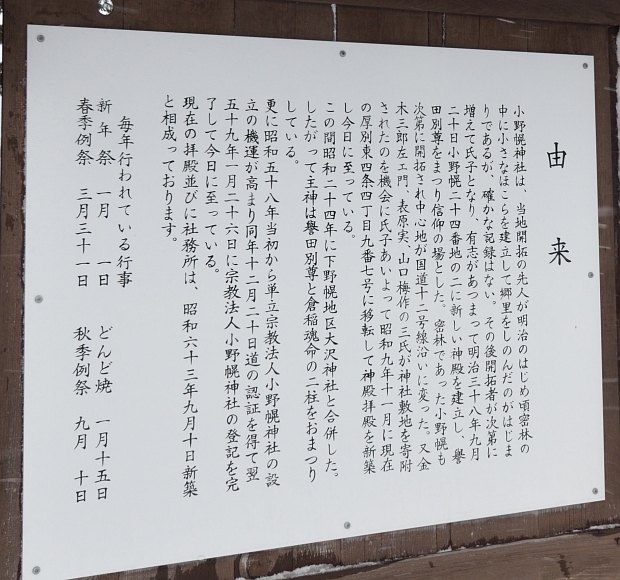 由来
小野幌神社は、当地開拓の先人が明治のはじめ頃密林の
中に小さなほこらを建立して郷里をしのんだのがはじま
りであるが、確かな記録はない。その後開拓者が次第に
増えて氏子となり、有志があつまって明治三十八年九月
二十日小野幌二十四番地の二に新しい神殿を建立し、誉
田別尊をまつり信仰の場とした。密林であった小野幌も
次第に開拓され中心地が国道十二号線沿いに変った。又金
木三郎左ェ門、表原実、山口梅作の三氏が神社敷地を寄附
されたのを機会に氏子あいよって昭和九年十一月に現在
の厚別東四条四丁目九番七号に移転して神殿拝殿を新築
し今日に至っている。
この間昭和二十四年に下野幌地区大沢神社と合併した。
したがって主神は譽田別尊と倉稲魂命の二柱をおまつり
している。
更に昭和五十八年当初から単立宗教法人小野幌神社の設
立の機運が高まり同年十二月二十日道の認証を得て翌
五十九年一月二十六日に宗教法人小野幌神社の登記を完
了して今日に至っている。
現在の拝殿並びに社務所は、昭和六十三年九月十日新築
と相成っております。
毎年行われている行事
新年祭 一月一日 どんど焼 一月十五日
春季例祭 三月三十一日 秋季例祭 九月十日